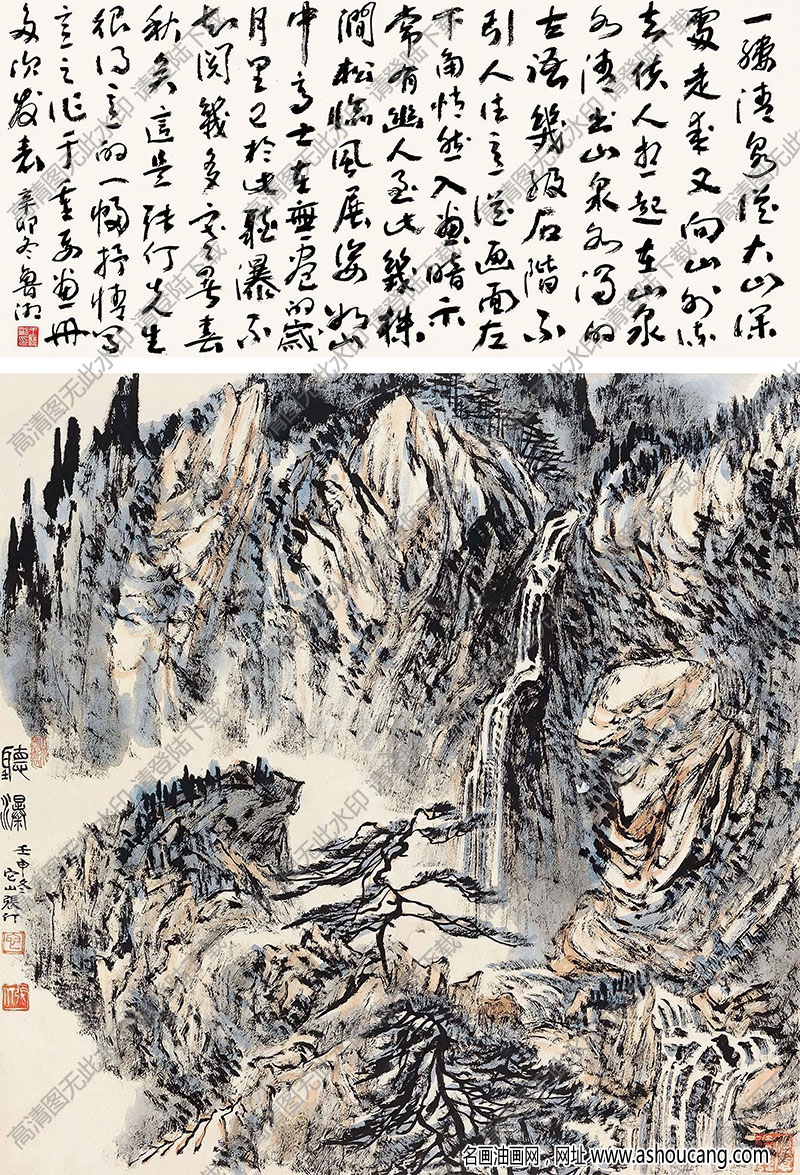 一縷清泉從大山深
處走來又向山外流
去使人想起在山泉
水清出山泉水濁的
古語幾級石階不
引人注意從畫面左
下角悄然入畫暗示
常有幽人至此幾株
澗松臨風展姿如山
中高士在無的歲
月里已於此聽瀑不
知閱幾多寒暑春
秋矣這是張仃先生
很得意的一幅抒情寫
意之作于重要畫冊
多次發表 辛卯冬魯湘
聽瀑 壬申冬它山張仃
高清图无此水印 请登陆下载
名画油画网 网址 www.ashoucang.com